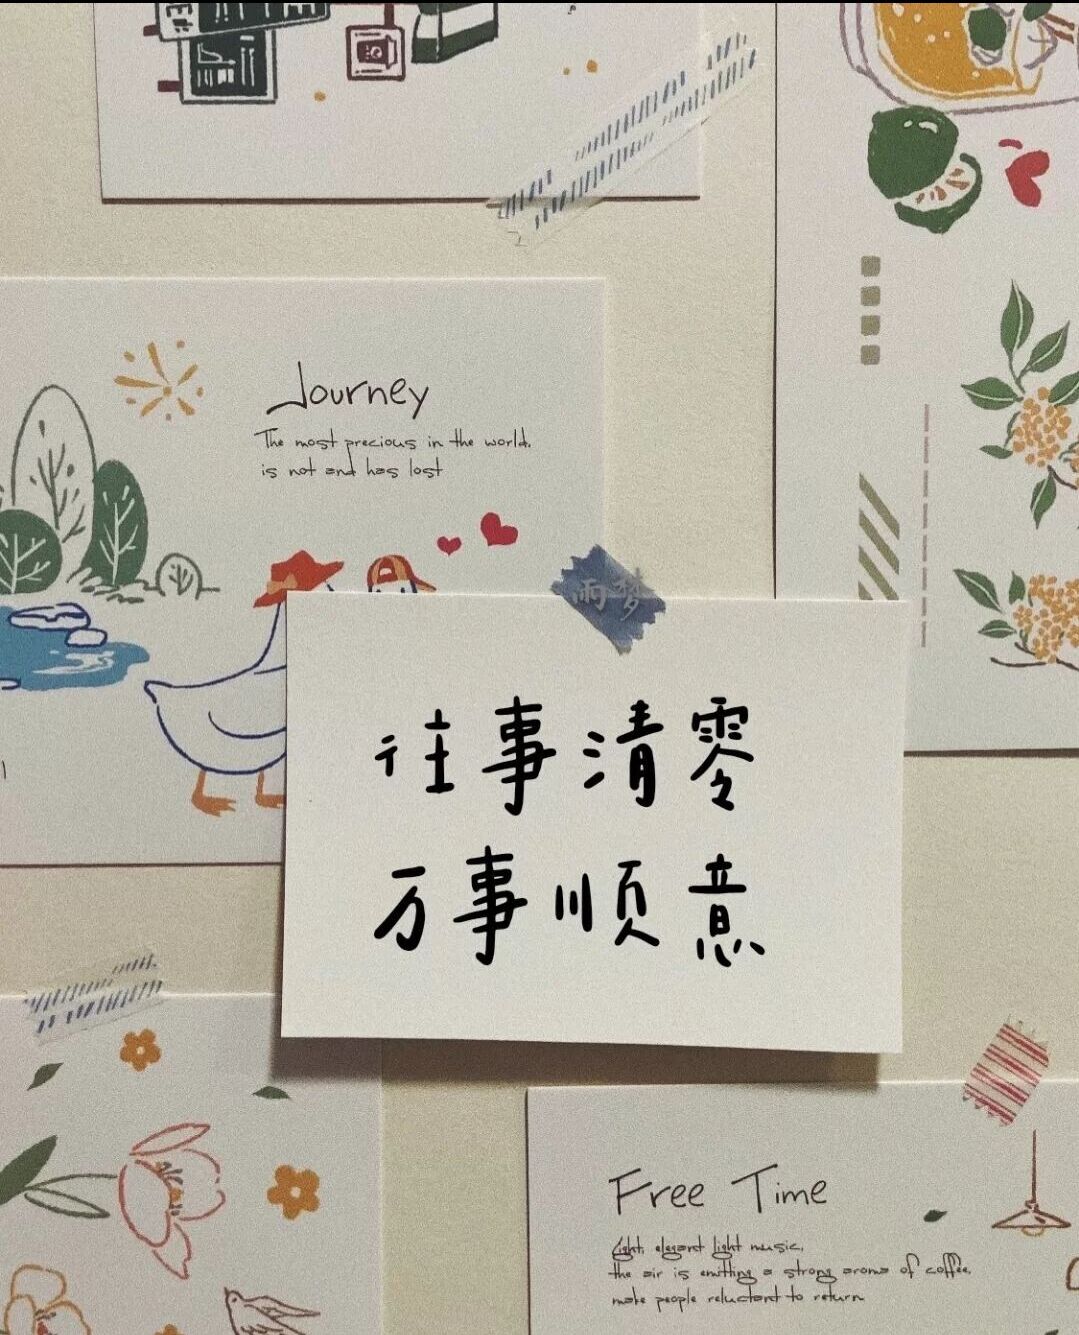 Journey
The most precious in the world,
is not and has lost
雨梦
往事清零
万事顺意
Free Time
Light, elegant light music,
the air is emitting a strong aroma of coffee,
make people reluctant to return